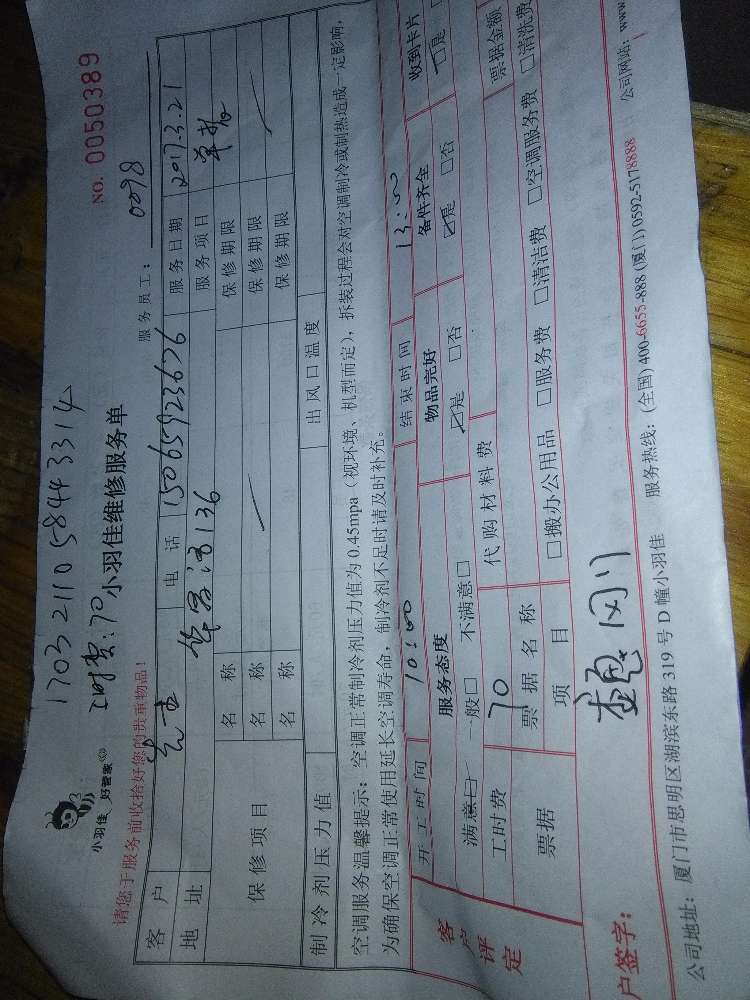 17032110584443314
NO. 0050389
小羽佳 好管家
工时费:70
小羽佳维修服务单
请您于服务前收拾好您的贵重物品!
服务员工: 0098
客户 电话 15065923676 服务日期 2017.3.21
地址 136 服务项目
保修项目 名称 保修期限
名称 保修期限
名称 保修期限
制冷剂压力值 出风口温度
空调服务温馨提示:空调正常制冷剂压力值为 0.45mpa(视环境、机型而定),拆装过程会对空调制冷或制热造成一定影响,
为确保空调正常使用延长空调寿命,制冷剂不足时请及时补充。
开工时间 10:00 结束时间 13:00
客户评定 服务态度 物品完好 备件齐全 收到卡片
满意☑ 一般□ 不满意□ ☑是 □否 ☑是 □否 □是
工时费 70 代购材料费 票据金额
票据 票据名称
项目 □搬办公用品 □服务费 □清洁费 □空调服务费 □清洗费
户签字:
公司地址:厦门市思明区湖滨东路 319 号 D 幢小羽佳 服务热线:(全国)400-6655-888 (厦门)0592-5178888 公司网站:www